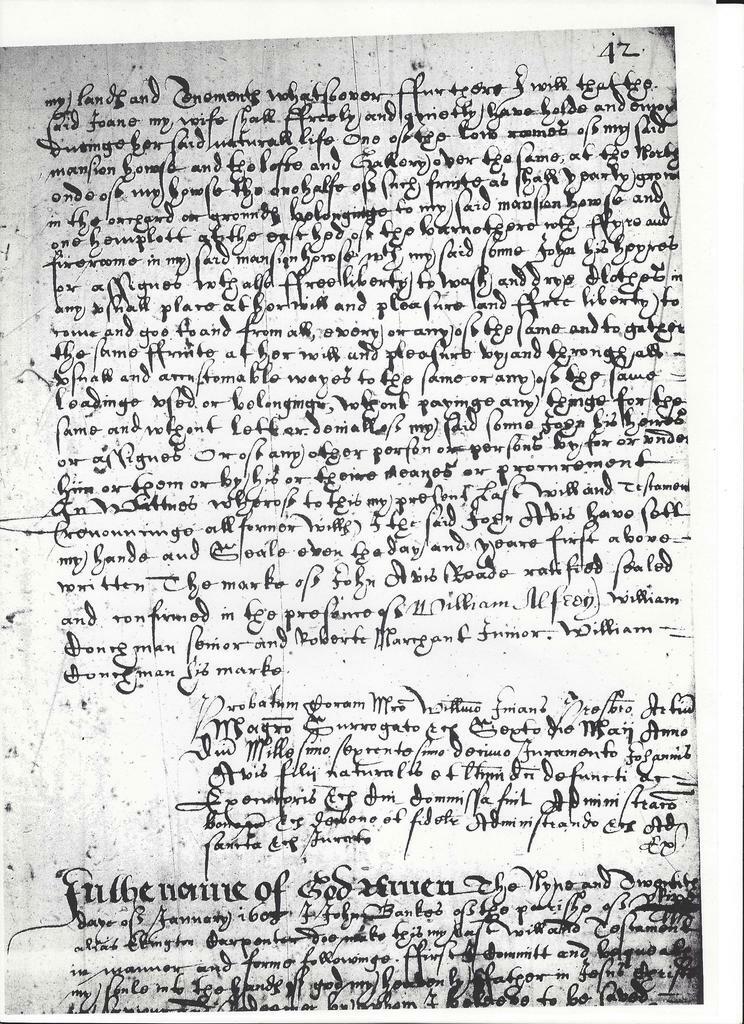 42
my landes and Tenements whatsoever ffurther I will that the
said Joane my wife shall ffreely and quietly have holde and enioy
duringe her said naturall life One of the lowe romes of my said
mansion howse and the lofte and Gallery over the same, at the North
ende of my howse the one halfe of such fruite as shall yearly grow
in the orchard or grounds belonginge to my said mansion howse and
one hemplott at the east hed of the barne there wth ffyre and
fireroome in my said mansion howse wth my said sonne John his heyres
or assignes wth also ffree liberty to wash and drye Clothes in
any usuall place at her will and pleasure and ffree liberty to
come and goe to and from all, every or any of the same and to gather
the same ffruite at her will and pleasure by and through all
usuall and accustomable wayes to the same or any of the same
leadinge used or belonginge, wthout payinge any thinge for the
same and wthout lett or deniall of my said sonne John his heires
or assignes Or of any other person or persons by for or under
him or them or by his or theire meanes or procurement
In Wittnes whereof to this my present last will and Testament
(renouncinge all former wills) I the said John Avis have sett
my hande and Seale even the day and yeare first above
written The marke of John Avis Reade ratified sealed
and confirmed in the presence of William Alfrey, William
Couchman senior and Roberte Marchant Junior. William
Couchman his marke
Probatum Coram Mro Willmo Inians Presbro Artiu
Magro Surrogato &c Sexto die Maij Anno
Dni Millesimo sexcentesimo decimo Juramento Johannis
Avis filij naturalis et ltimi dci defuncti ac
Executoris &c cui Commissa fuit Administraco
bonoru &c De bene et fidelr Administrando &c Ad
sancta &c Jurato
Ex
In the name of God Amen The Nyne and Twentith
daye of January 1609 I John Bankes of the parishe of
alias Ekington Carpenter doe make this my last will and Testament
in manner and forme followinge. ffirst I Committ and bequeathe
my soule into the hands of god my heavenly ffather in Jesus Christe
Redeemer by whom I beleeve to be saved